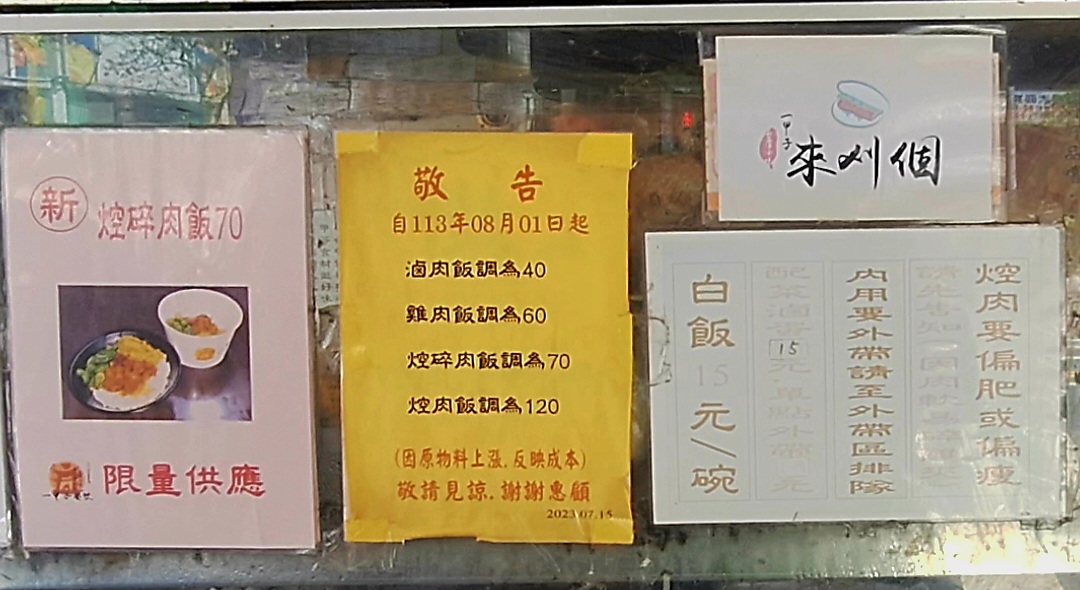 新
焢碎肉飯70
限量供應
敬告
自113年08月01日起
滷肉飯調為40
雞肉飯調為60
焢碎肉飯調為70
焢肉飯調為120
(因原物料上漲.反映成本)
敬請見諒.謝謝惠顧
2023.07.15
一甲子
來刈個
焢肉要偏肥或偏瘦
請先告知
內用要外帶請至外帶區排隊
配菜滷蛋15元
白飯15元/碗